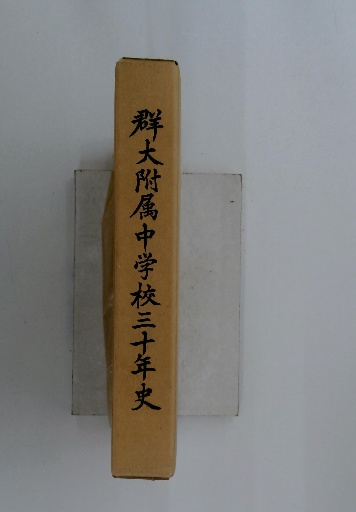 群大附属中学校三十年史